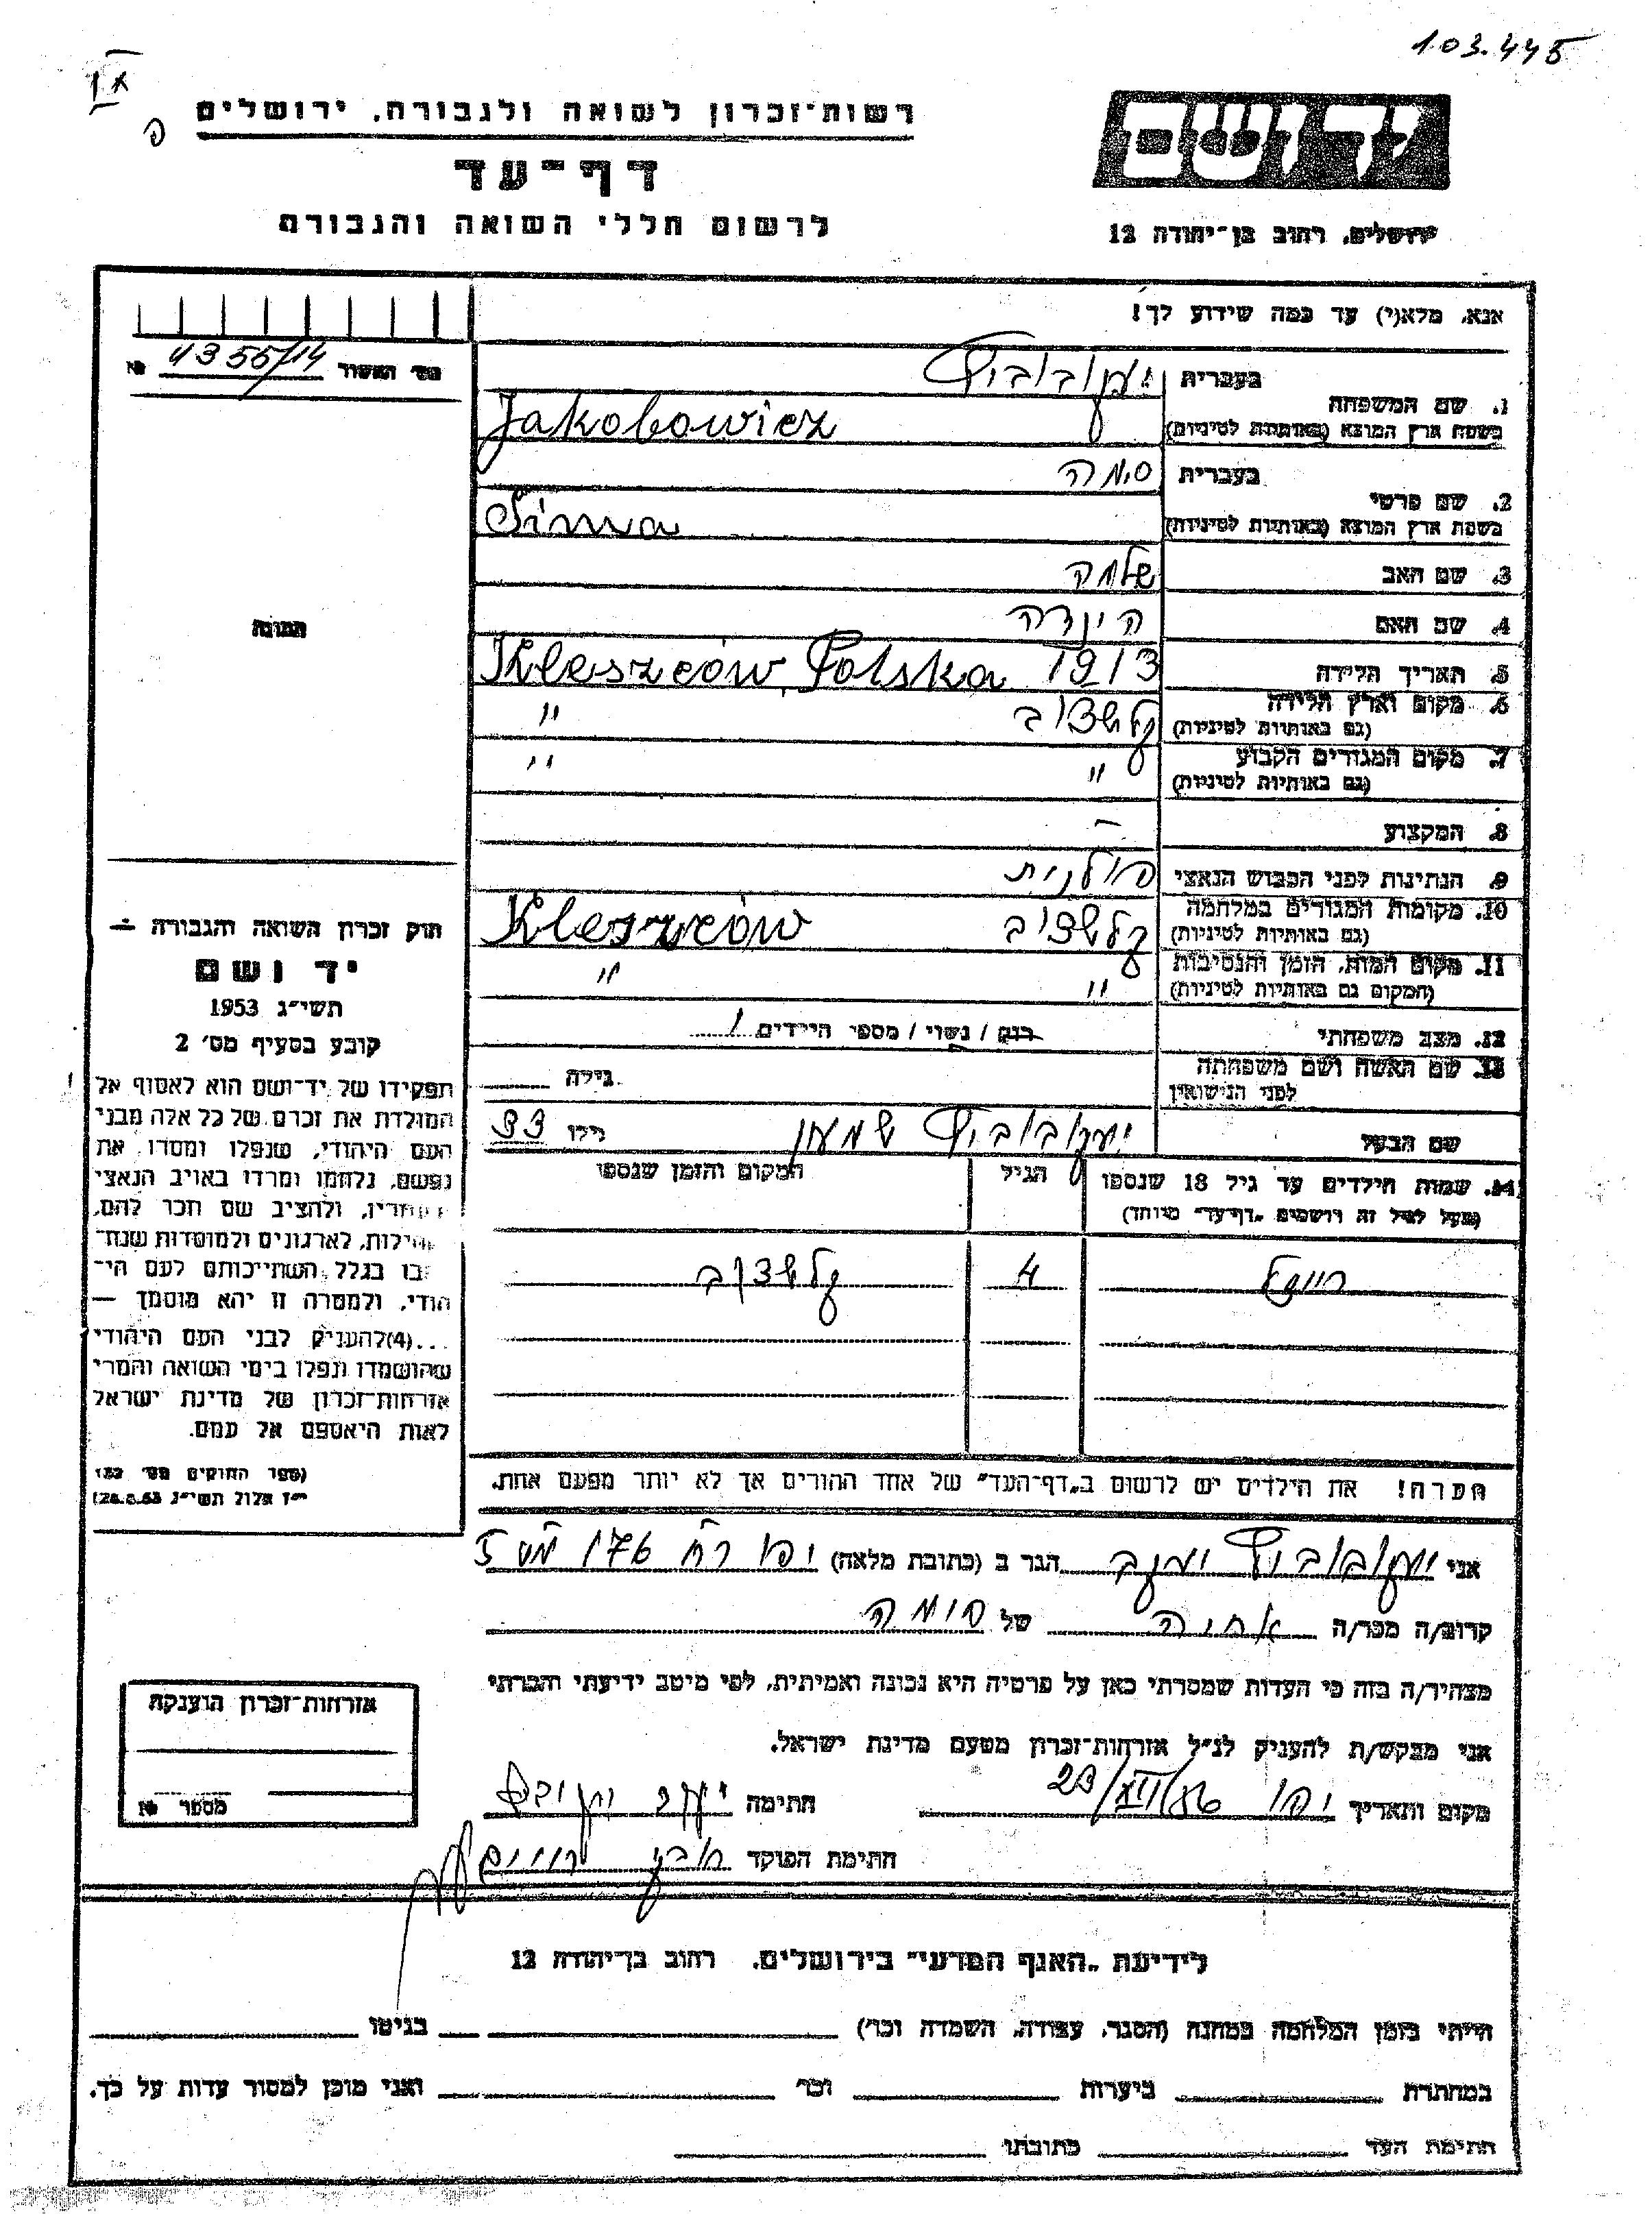 103.445
רשות־זכרון לשואה ולגבורה, ירושלים
דף־עד
לרשום חללי השואה והגבורה
יד ושם
ירושלים, רחוב בן־יהודה 12
אנא, מלא(י) עד כמה שידוע לך!
מס' האשור 4355/14 №
1. שם המשפחה
בעברית יעקובוביץ
בשפת ארץ המוצא (באותיות לטיניות) Jakobowicz
2. שם פרטי
בעברית סימה
בשפת ארץ המוצא (באותיות לטיניות) Sima
3. שם האב שלמה
4. שם האם הינדה
תמונה
5. תאריך הלידה 1913
Kleszców, Polska
6. מקום וארץ הלידה
(גם באותיות לטיניות) קלשצוב "
7. מקום המגורים הקבוע
(גם באותיות לטיניות) " "
8. המקצוע –
9. הנתינות לפני הכבוש הנאצי פולנית
10. מקומות המגורים במלחמה
(גם באותיות לטיניות) קלשצוב Kleszców
11. מקום המות, הזמן והנסיבות
(המקום גם באותיות לטיניות) " "
12. מצב משפחתי רווק / נשוי / מספר הילדים 1
13. שם האשה ושם משפחתה
לפני הנישואין גילה
שם הבעל יעקובוביץ שמעון גילו 33
14. שמות הילדים עד גיל 18 שנספו הגיל המקום והזמן שנספו
(מעל לגיל זה רושמים "דף־עד" מיוחד)
4 קלשצוב
הערה! את הילדים יש לרשום ב"דף־העד" של אחד ההורים אך לא יותר מפעם אחת.
חוק זכרון השואה והגבורה –
יד ושם
תשי"ג 1953
קובע בסעיף מס' 2
תפקידו של יד־ושם הוא לאסוף אל
המולדת את זכרם של כל אלה מבני
העם היהודי, שנפלו ומסרו את
נפשם, נלחמו ומרדו באויב הנאצי
ובעוזריו, ולהציב שם וזכר להם,
לקהילות, לארגונים ולמוסדות שנח־
רבו בגלל השתייכותם לעם הי־
הודי, ולמטרה זו יהא מוסמך —
...(4) להעניק לבני העם היהודי
שהושמדו ונפלו בימי השואה והמרי
אזרחות־זכרון של מדינת ישראל
לאות היאספם אל עמם.
(ספר החוקים מס' 132
י"ז אלול תשי"ג 28.8.53)
אני יעקובוביץ יעקב הגר ב (כתובת מלאה) יפו 176
קרוב/ה מכר/ה אחיה של סימה
מצהיר/ה בזה כי העדות שמסרתי כאן על פרטיה היא נכונה ואמיתית, לפי מיטב ידיעתי והכרתי
אני מבקש/ת להעניק לנ"ל אזרחות־זכרון מטעם מדינת ישראל.
מקום ותאריך יפו 23/XII/56 חתימה
חתימת הפוקד
אזרחות־זכרון הוענקה
מספר №
לידיעת "האגף המדעי" בירושלים. רחוב בן־יהודה 12
הייתי בזמן המלחמה במחנה (הסגר, עבודה, השמדה וכו') בגיטו
במחתרת ביערות וכו' ואני מוכן למסור עדות על כך.
חתימת העד כתובתו